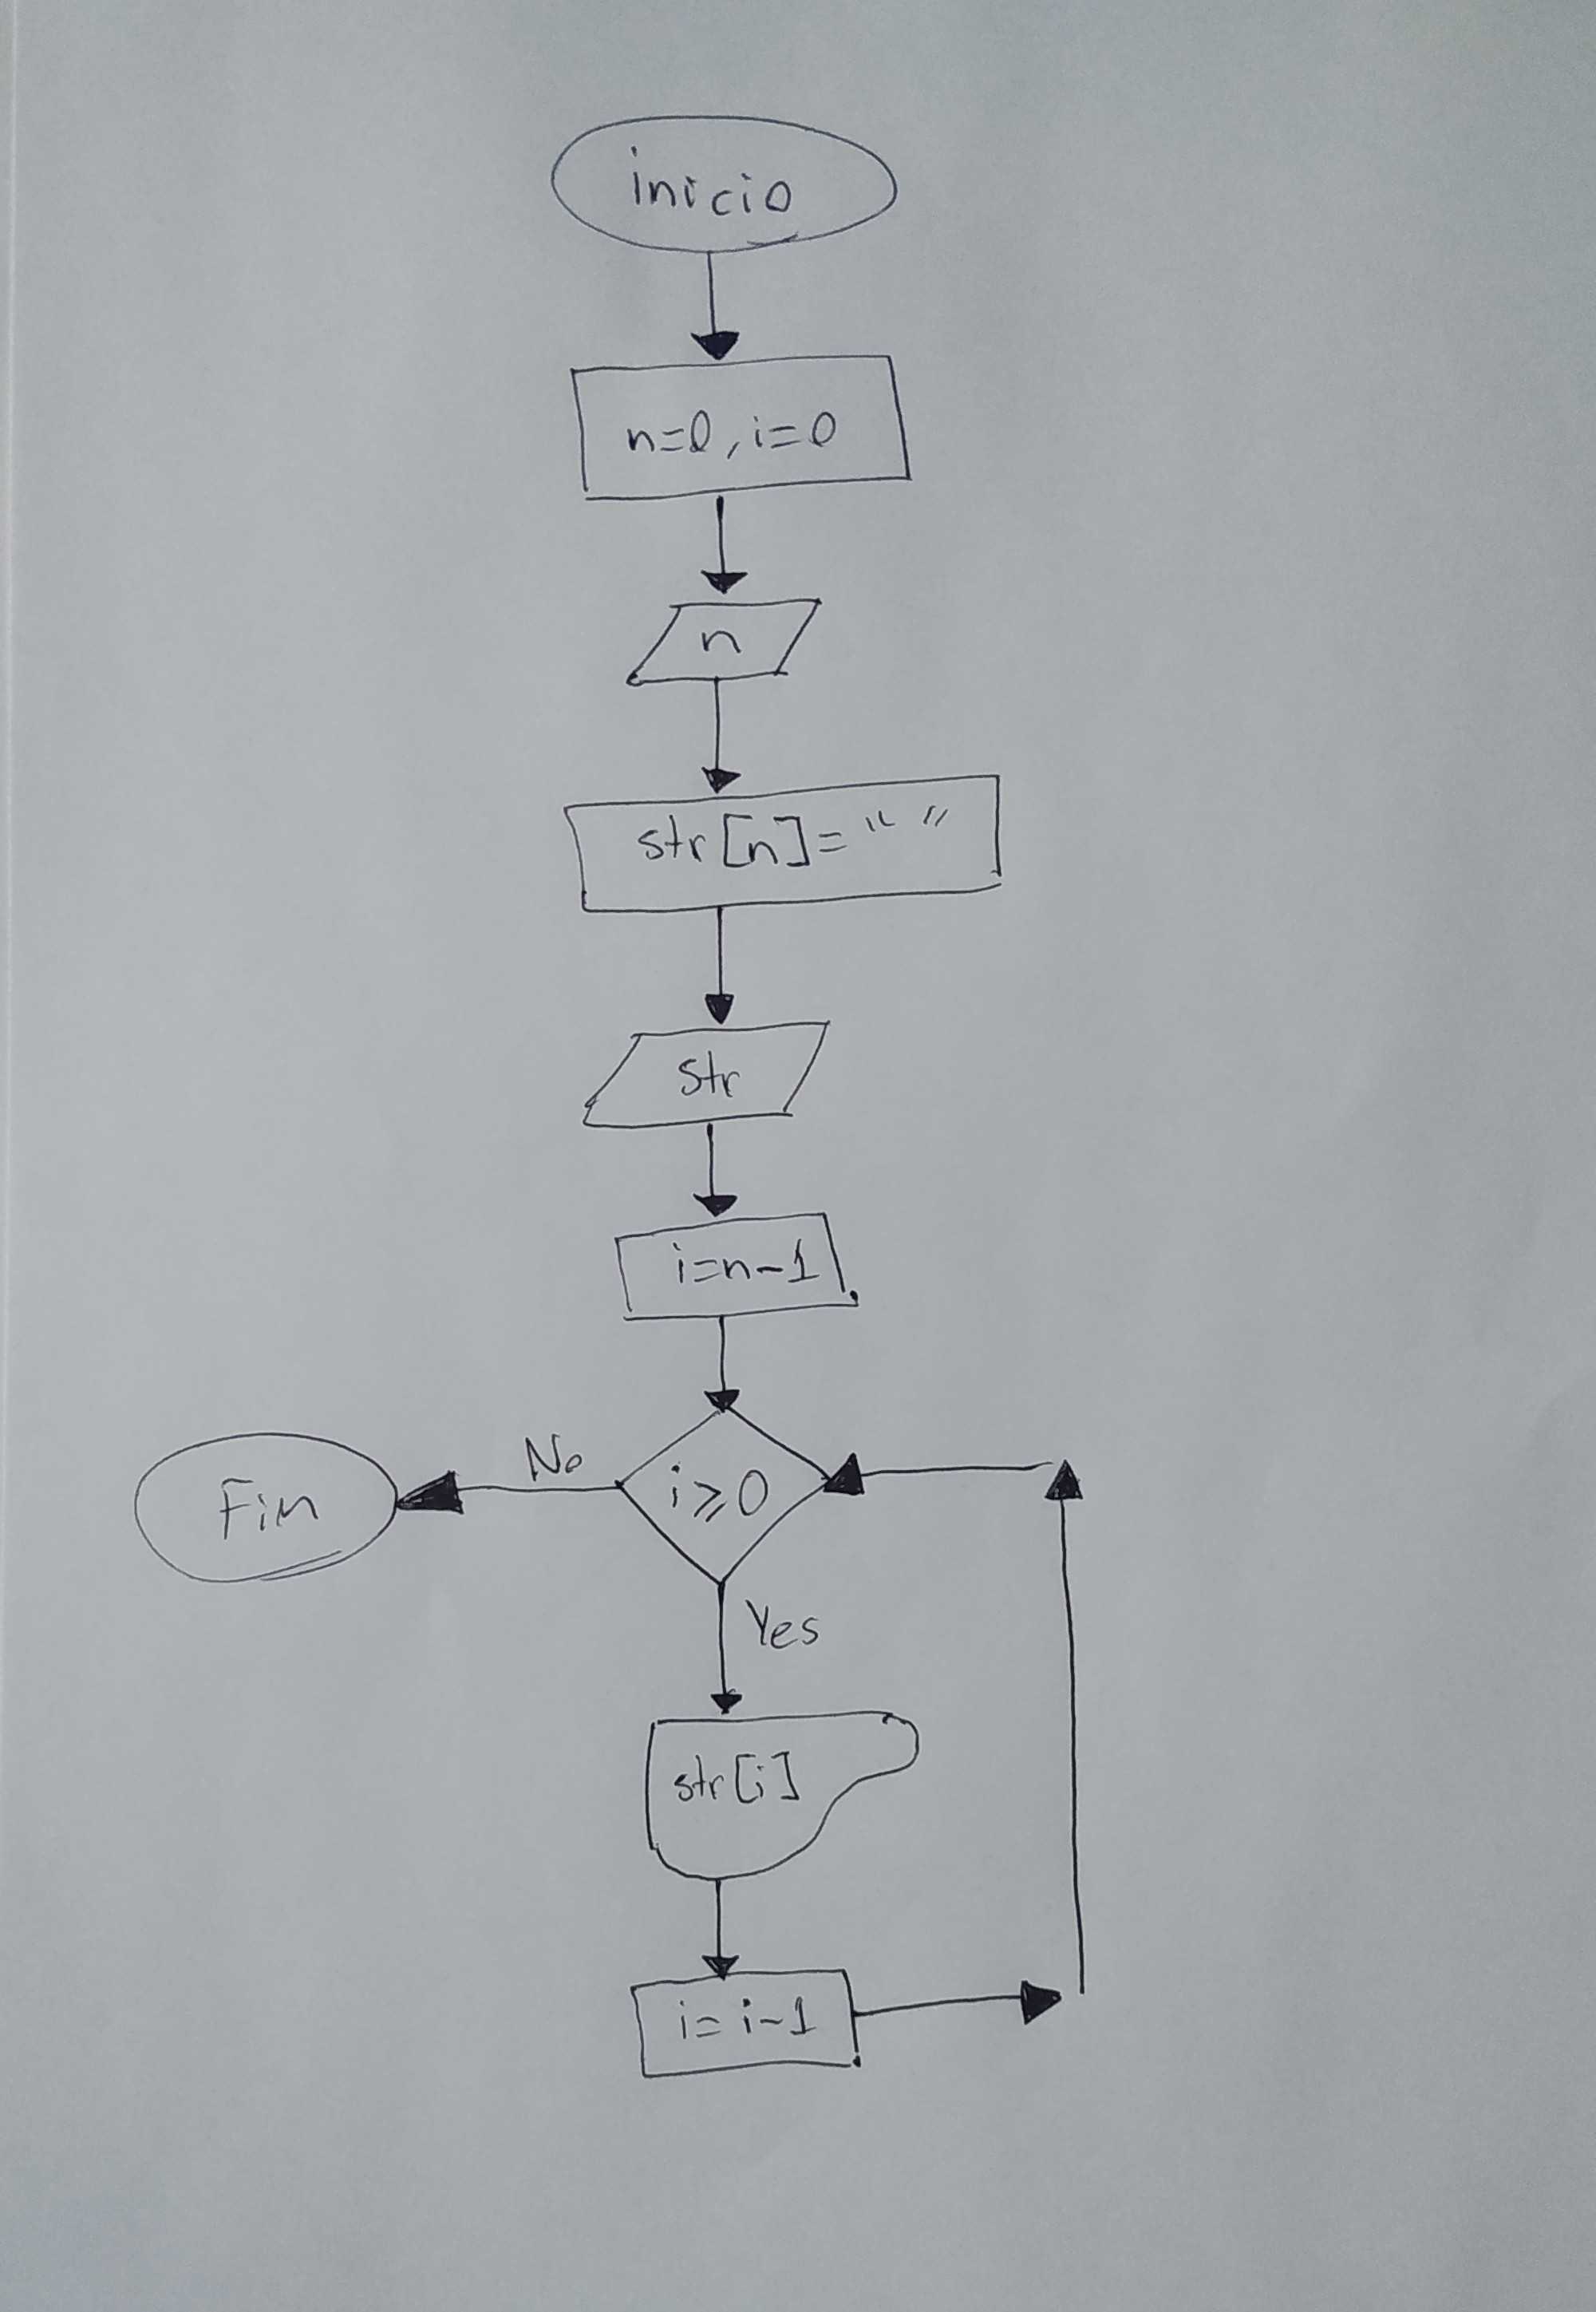 inicio
n=0, i=0
n
str[n]=" "
str
i=n-1
i≥0
No
Fin
Yes
str[i]
i=i-1